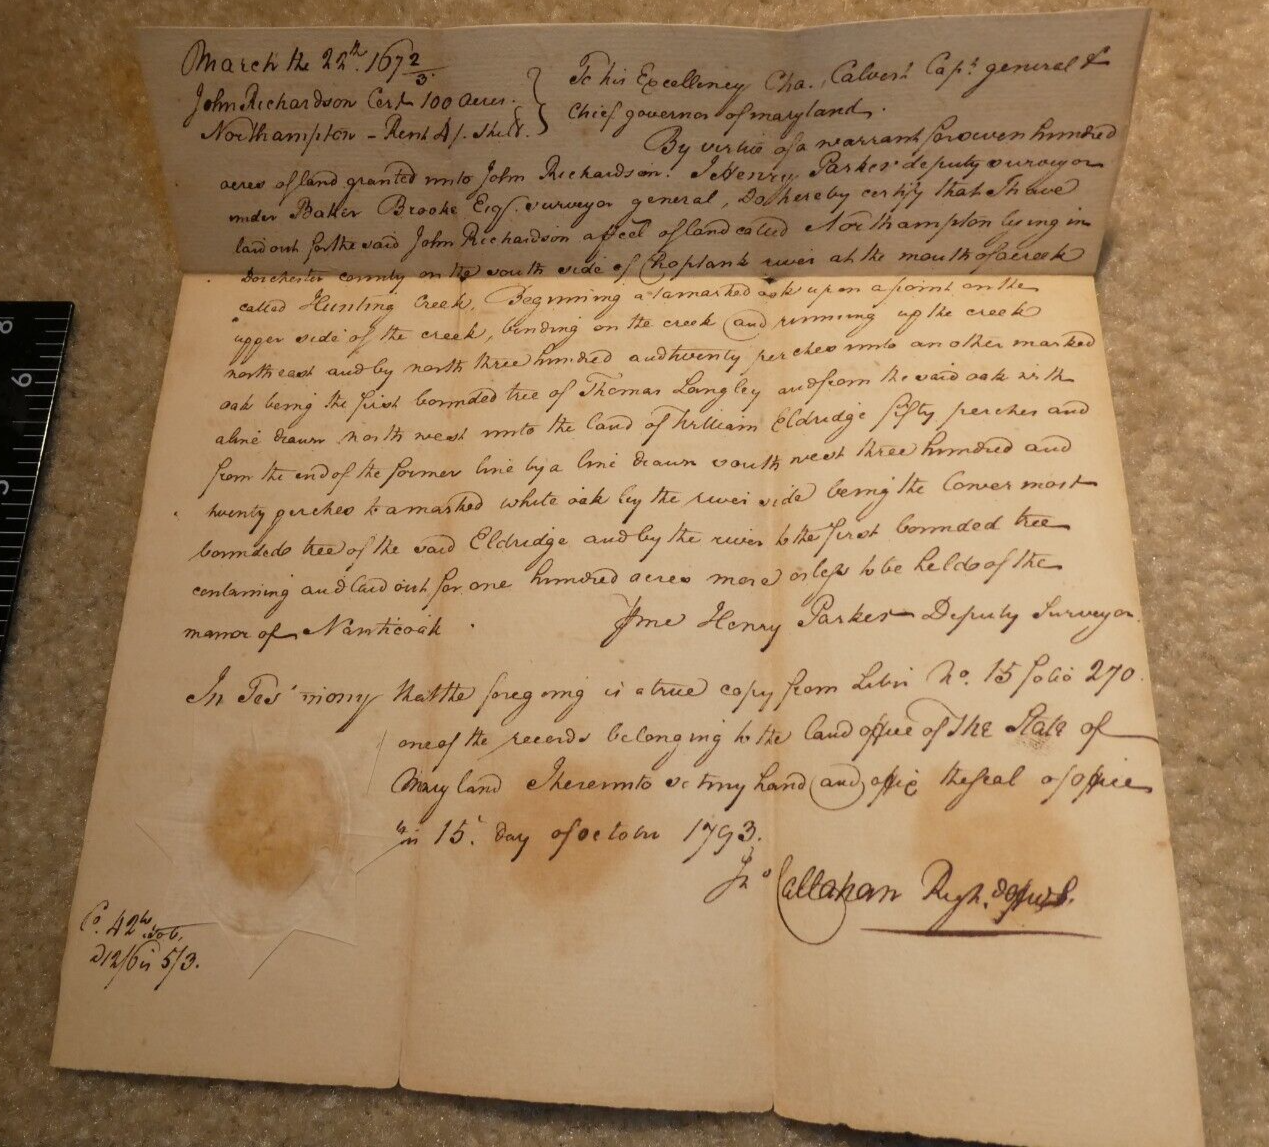 March the 22th. 167 2/3.
John Richardson Cert 100 acres.
Northampton - Rent 4/. Sterl.
To his Excellency Cha. Calvert Capt. general &
Chief governor of maryland.
By virtue of a warrant for seven hundred
acres of land granted unto John Richardson. I Henry Parker deputy surveyor
under Baker Brooke Esqr. surveyor general, Do hereby certify that I have
laid out for the said John Richardson a parcel of land called Northampton lying in
Dorchester county on the south side of Choptank river at the mouth of a creek
called Hunting Creek, Beginning at a marked oak upon a point on the
upper side of the creek, binding on the creek and running up the creek
north east and by north three hundred and twenty perches unto an other marked
oak being the first bounded tree of Thomas Langley and from the said oak with
a line drawn north west unto the land of William Eldridge fifty perches and
from the end of the former line by a line drawn south west three hundred and
twenty perches to a marked white oak by the river side being the lower most
bounded tree of the said Eldridge and by the river to the first bounded tree
containing and laid out for one hundred acres more or less to be held of the
manor of Nanticoak
Pr me Henry Parker Deputy Surveyor.
In Testimony that the foregoing is a true copy from Libri No. 15 folio 270.
one of the records belonging to the land office of The State of
Maryland I hereunto set my hand and affix the seal of office
this 15. day of october 1793.
Jno Callahan Regr.
Co. 42